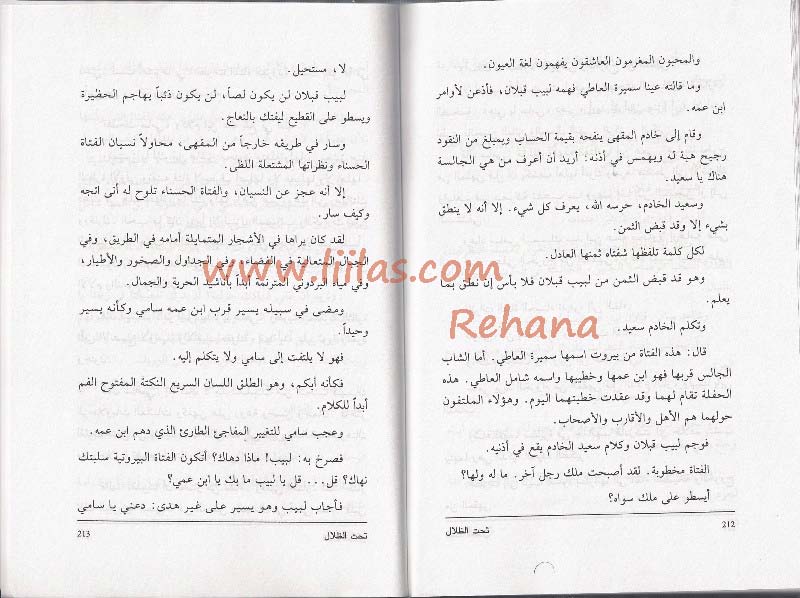 والمحبون المغرمون العاشقون يفهمون لغة العيون.
وما قالته عينا سميرة العاطي فهمه لبيب قبلان، فأذعن لأوامر
ابن عمه.
وقام إلى خادم المقهى ينفحه بقيمة الحساب وبمبلغ من النقود
رجيح هبة له ويهمس في أذنه: أريد أن أعرف من هي الجالسة
هناك يا سعيد.
وسعيد الخادم، حرسه الله، يعرف كل شيء. إلا أنه لا ينطق
بشيء إلا وقد قبض الثمن.
لكل كلمة تلفظها شفتاه ثمنها العادل.
وهو قد قبض الثمن من لبيب قبلان فلا بأس إن نطق بما
يعلم.
وتكلم الخادم سعيد.
قال: هذه الفتاة من بيروت اسمها سميرة العاطي. أما الشاب
الجالس قربها فهو ابن عمها وخطيبها واسمه شامل العاطي. هذه
الحفلة تقام لهما وقد عقدت خطبتهما اليوم. وهؤلاء الملتفون
حولهما هم الأهل والأقارب والأصحاب.
فوجم لبيب قبلان وكلام سعيد الخادم يقع في أذنيه.
الفتاة مخطوبة. لقد أصبحت ملك رجل آخر. ما له ولها؟
أيسطو على ملك سواه؟
تحت الظلال
212
لا، مستحيل.
لبيب قبلان لن يكون لصاً، لن يكون ذئباً يهاجم الحظيرة
ويسطو على القطيع ليفتك بالنعاج.
وسار في طريقه خارجاً من المقهى، محاولاً نسيان الفتاة
الحسناء ونظراتها المشتعلة اللظى.
إلا أنه عجز عن النسيان، والفتاة الحسناء تلوح له أنى اتجه
وكيف سار.
لقد كان يراها في الأشجار المتمايلة أمامه في الطريق، وفي
الجبال المتعالية في الفضاء، وفي الجداول والصخور والأطيار،
وفي مياه البردوني المترنمة أبداً بأناشيد الحرية والجمال.
ومضى في سبيله يسير قرب ابن عمه سامي وكأنه يسير
وحيداً.
فهو لا يلتفت إلى سامي ولا يتكلم إليه.
فكأنه أبكم، وهو الطلق اللسان السريع النكتة المفتوح الفم
أبداً للكلام.
وعجب سامي للتغيير المفاجئ الطارئ الذي دهم ابن عمه.
فصرخ به: لبيب! ماذا دهاك؟ أتكون الفتاة البيروتية سلبتك
نهاك؟ قل... قل يا لبيب ما بك يا ابن عمي؟
فأجاب لبيب وهو يسير على غير هدى: دعني يا سامي
تحت الظلال
213
www.liilas.com
Rehana